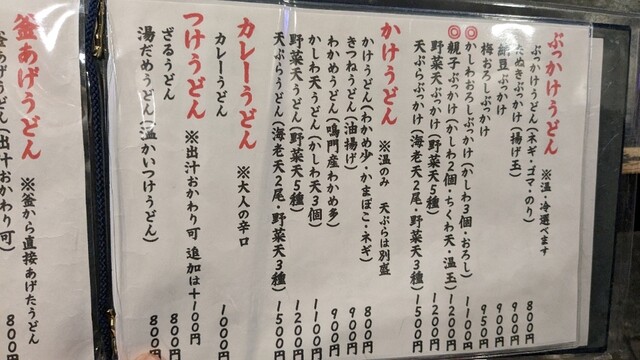 ぶっかけうどん ※温・冷選べます
ぶっかけうどん(ネギ・ゴマ・のり) 800円
たぬきぶっかけ(揚げ玉) 900円
納豆ぶっかけ 900円
梅おろしぶっかけ 950円
◎かしわおろしぶっかけ(かしわ3個・おろし) 1100円
◎親子ぶっかけ(かしわ2個・ちくわ天・温玉) 1200円
野菜天ぶっかけ(野菜天5種) 1200円
天ぷらぶっかけ(海老天2尾・野菜天3種) 1500円
かけうどん ※温のみ 天ぷらは別盛
かけうどん(わかめ少・かまぼこ・ネギ) 800円
きつねうどん(油揚げ) 900円
わかめうどん(鳴門産わかめ多) 900円
かしわ天うどん(かしわ天3個) 1100円
野菜天うどん(野菜天5種) 1200円
天ぷらうどん(海老天2尾・野菜天3種) 1500円
カレーうどん ※大人の辛口
カレーうどん 1000円
つけうどん ※出汁おかわり可 追加は+100円
ざるうどん 800円
湯だめうどん(温かいつけうどん) 800円
釜あげうどん ※釜から直接あげたうどん
釜あげうどん(出汁おかわり可) 800円